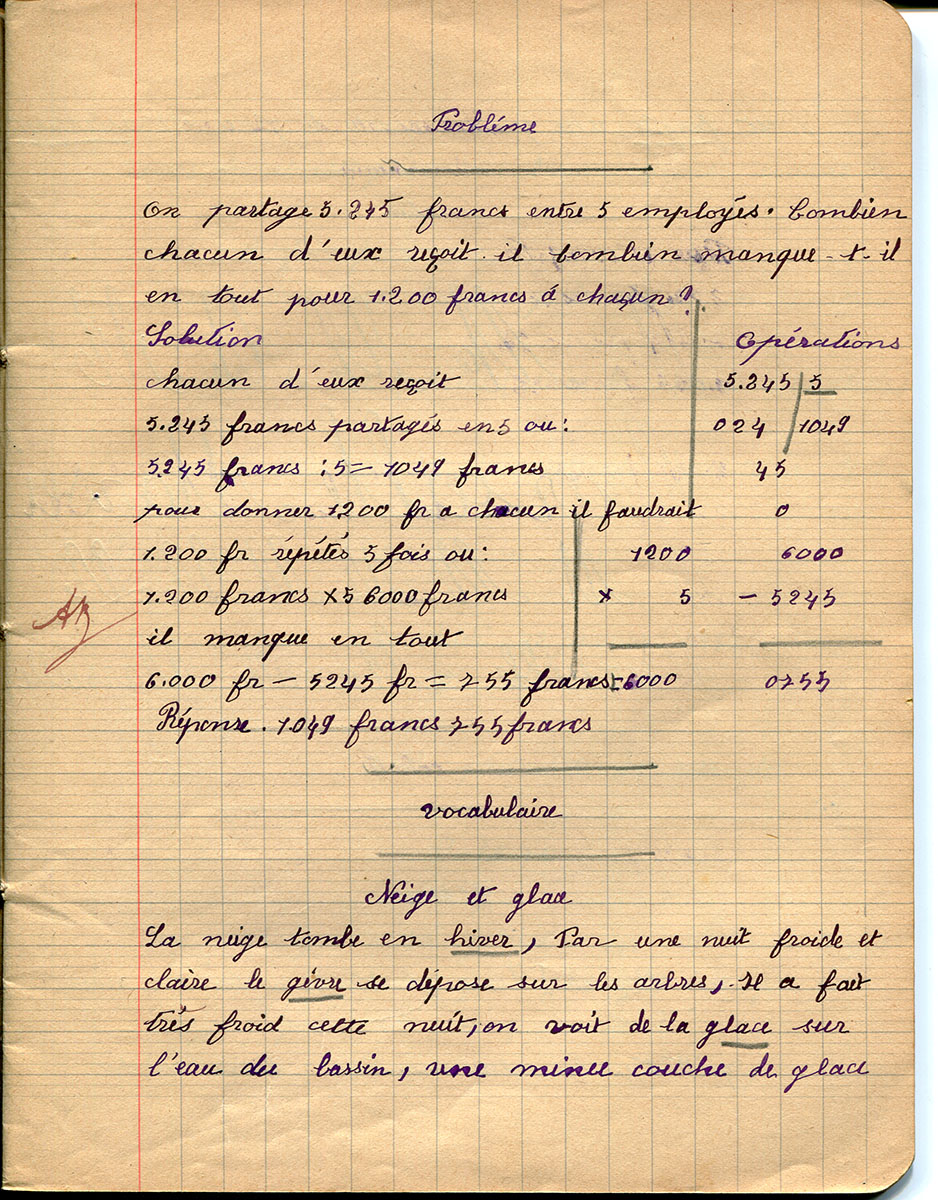 Probléme
On partage 5.245 francs entre 5 employés. Combien
chacun d'eux reçoit-il Combien manque-t-il
en tout pour 1.200 francs á chaçun ?
Solution Opérations
chacun d'eux reçoit 5.245 / 5
5.245 francs partagés en 5 ou: 024 / 1049
5.245 francs : 5 = 1049 francs 45
pour donner 1200 fr a chacun il faudrait 0
1.200 fr répétés 5 fois ou: 1200 6000
1.200 francs X 5 6000 francs x 5 - 5245
il manque en tout
6.000 fr - 5245 fr = 755 francs =6000 0755
Réponse. 1.049 francs 755 francs
vocabulaire
Neige et glace
La neige tombe en hiver, Par une nuit froide et
claire le givre se dépose sur les arbres, Il a fait
trés froid cette nuit, on voit de la glace sur
l'eau du bassin, une mince couche de glace